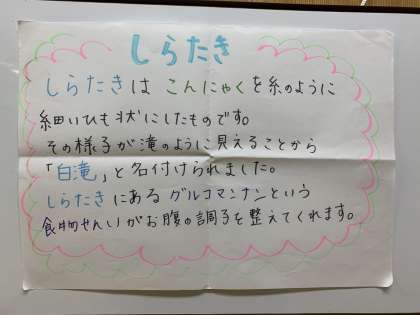 しらたき
しらたきは こんにゃくを糸のように
細いひも状にしたものです。
その様子が滝のように見えることから
「白滝」と名付けられました。
しらたきにあるグルコマンナンという
食物せんいがお腹の調子を整えてくれます。